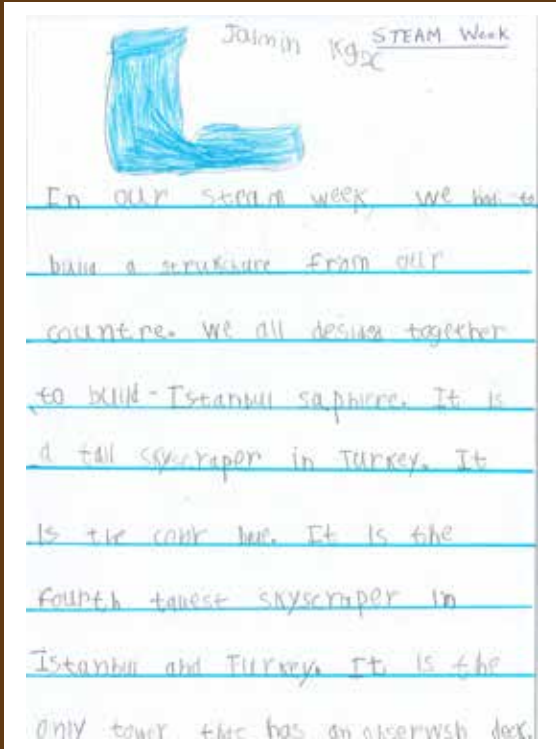 Jasmin Kg2C STEAM Week
In our steam week we had to
build a strukchure from our
countre. We all design together
to build - Istanbul saphiere. It is
a tall skyscraper in Turkey. It
is the colur blue. It is the
fourth tallest skyscraper in
Istanbul and Turkey. It is the
only tower that has an obserwsh deck.